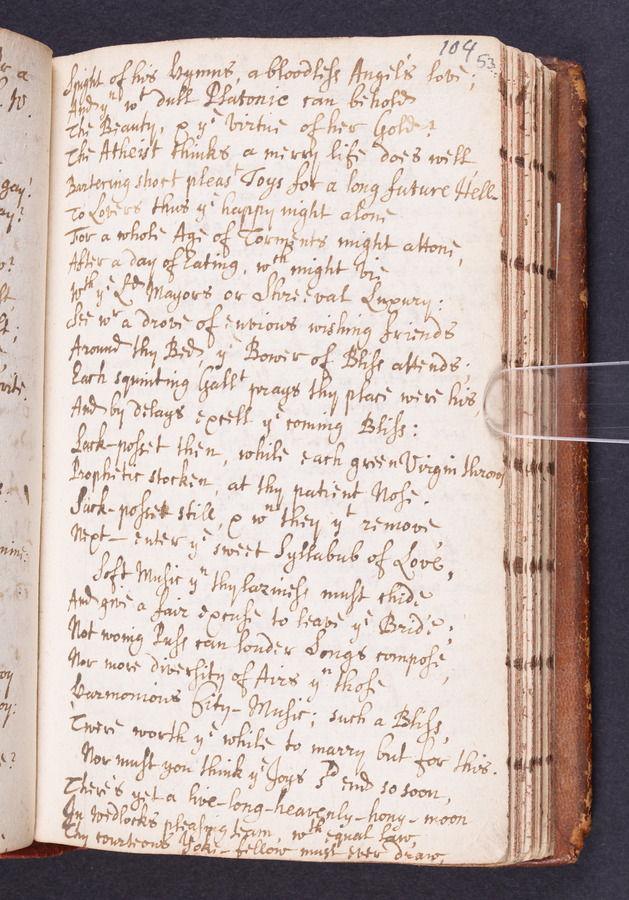 104
53
Spight of his Hymns, a bloodless Angel's love;
And yn wt dull Platonic can behold
The Beauty, & ye Virtue of her Gold?
The Atheist thinks a merry life does well
Bartering short pleast Toys for a long future Hell
To Lovers thus ye happy night alone
For a whole Age of Torments might attone,
After a day of Eating, wch might vie
Wth ye Ld Mayors or Shreeval Luxury:
See wt a drove of envious wishing friends
Around thy Bed, ye Bower of Bliss attends;
Each squinting Gallt prays thy place were his,
And by delays excell ye coming Bliss:
Sack-posset then, while each green Virgin throws
Prophetic stocken, at thy patient Nose.
Sack-posset still, & wn they yt remove,
Next- enter ye sweet Syllabub of Love,
Soft Music yn thy laziness must chide
And give a fair excuse to leave ye Bride;
Not woing Puss can louder Songs compose,
Nor more diversity of Airs yn those
Harmonious City-Music; such a Bliss,
Twere worth ye while to marry but for this.
Nor must you think ye Joys shd end so soon,
There's yet a live-long-heavenly-hony-moon
In Wedlocks pleasing team, wth equal law,
Thy courteous Yoke-fellow must ever draw,